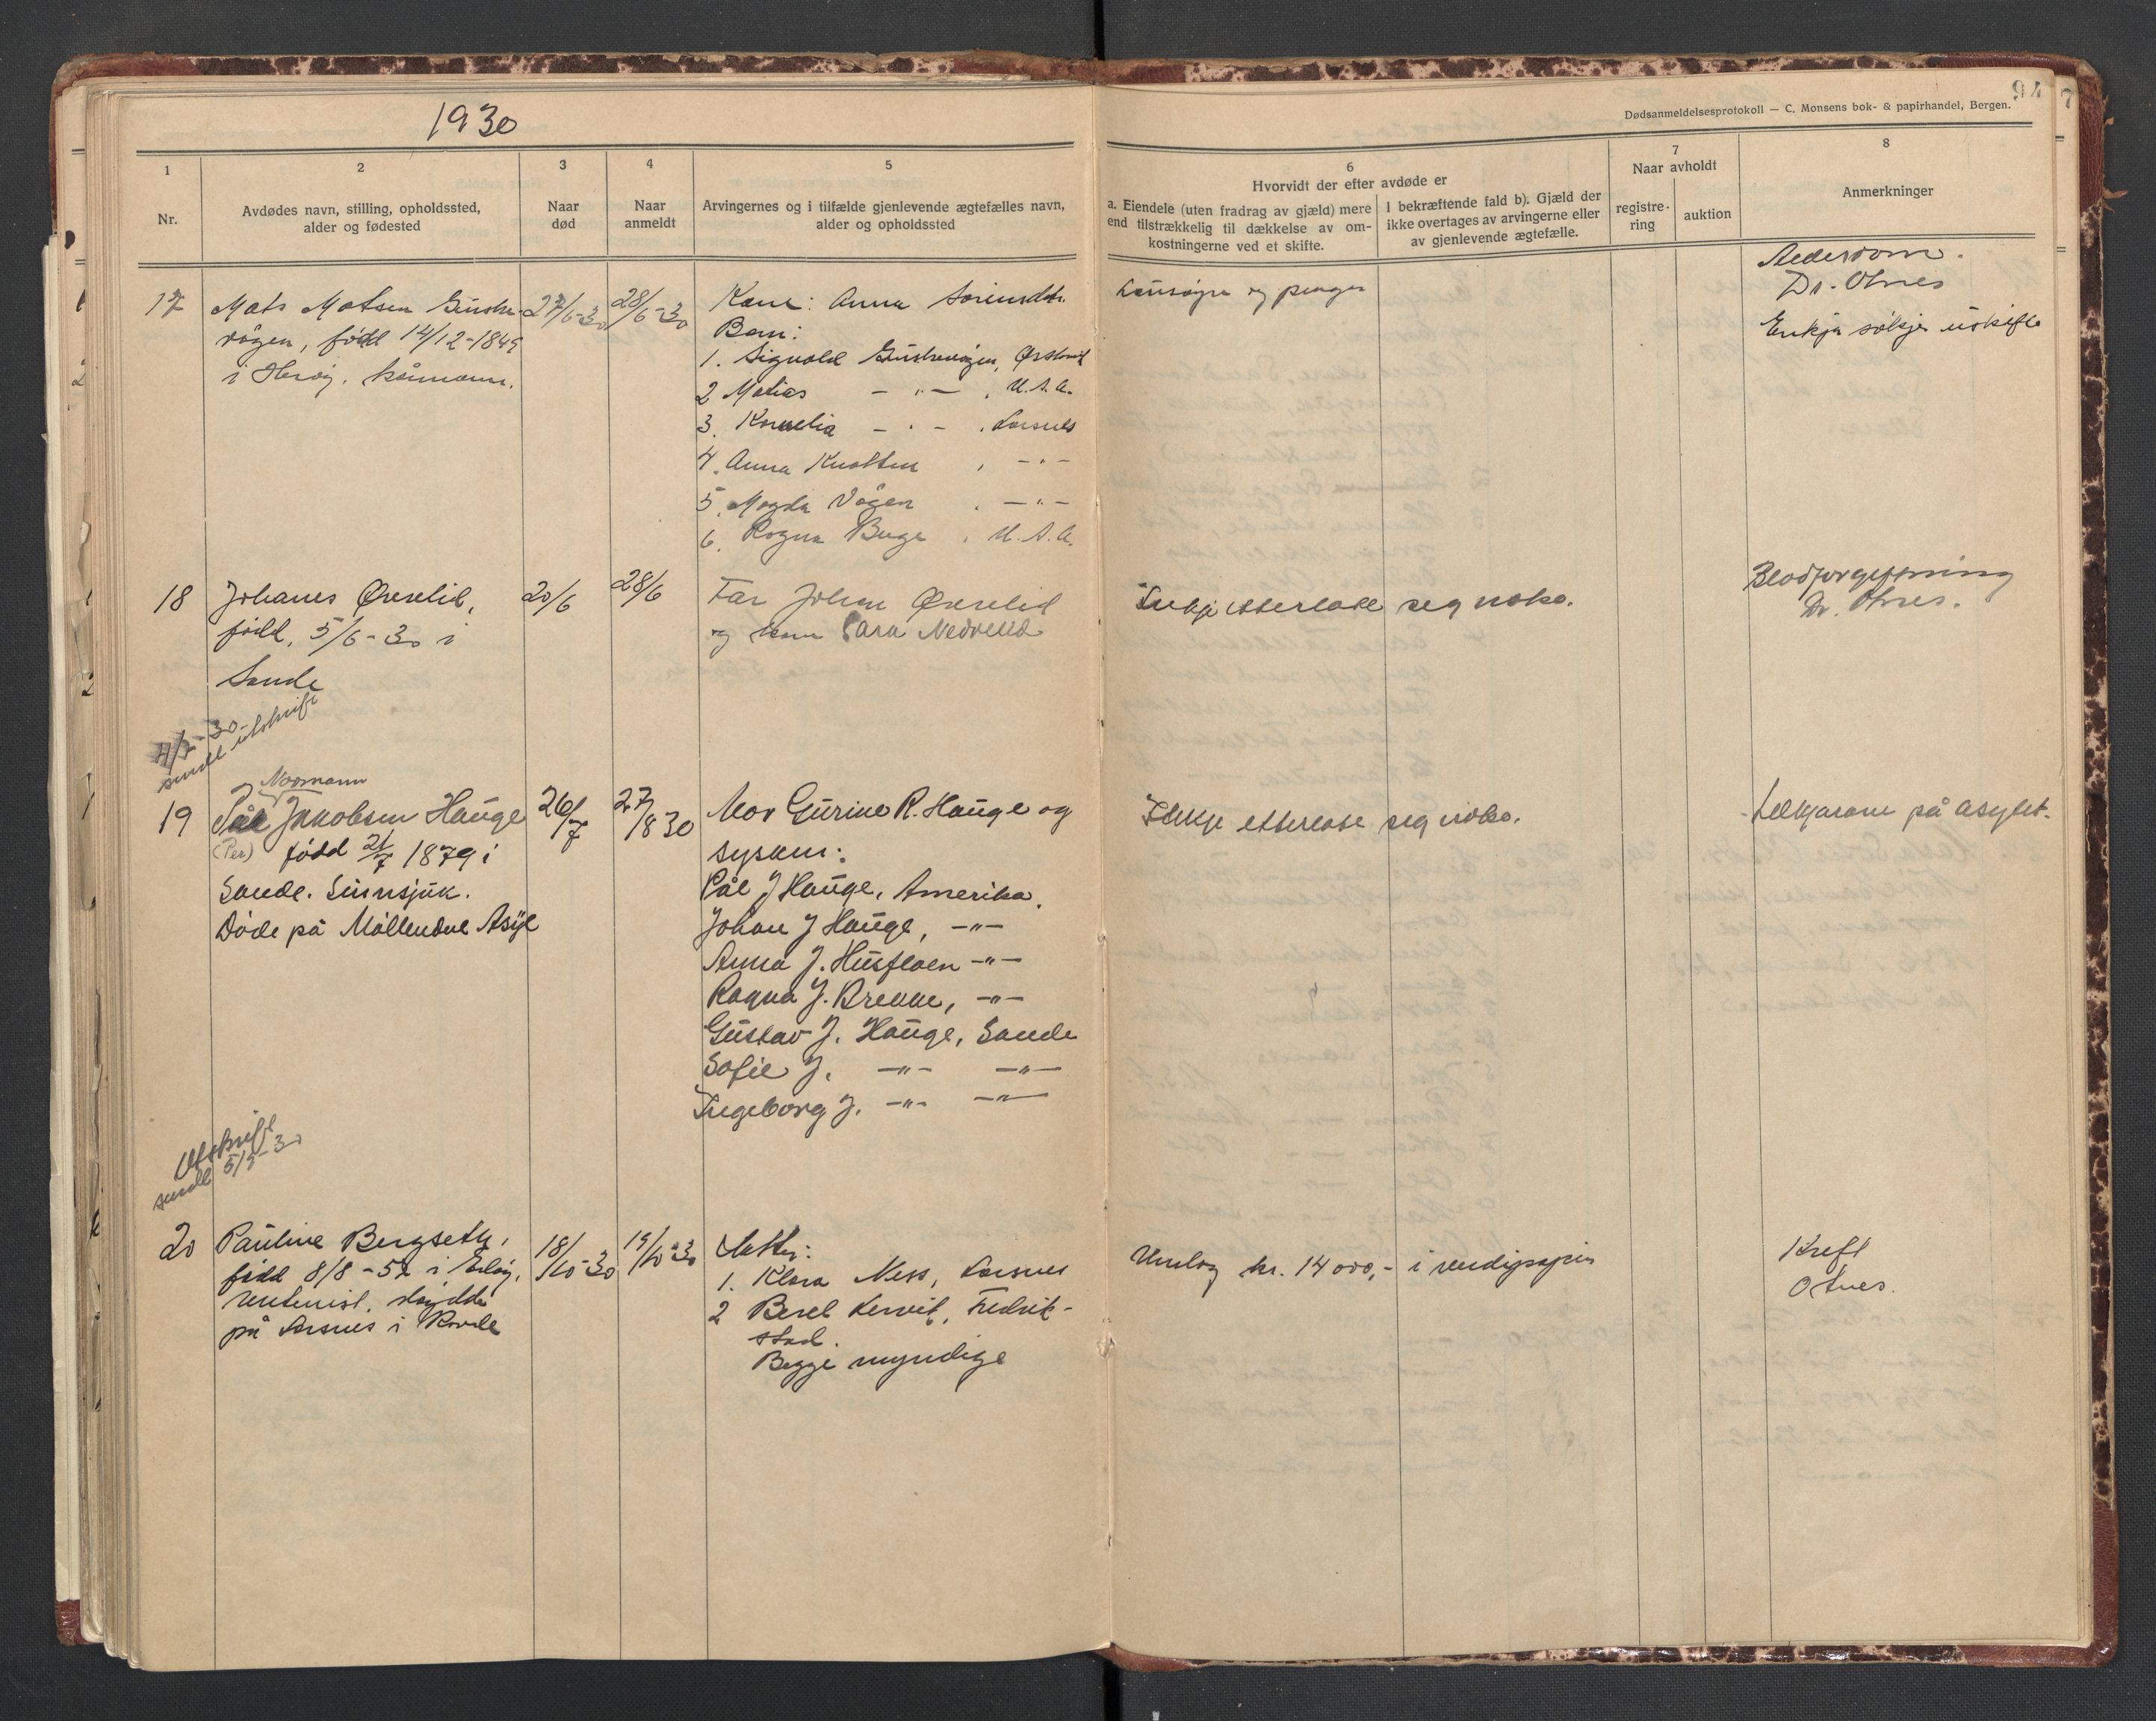 1930
94
Dødsanmeldelsesprotokoll — C. Monsens bok- & papirhandel, Bergen.
1
2
3
4
5
6
7
8
Nr.
Avdødes navn, stilling, opholdssted,
alder og fødested
Naar
død
Naar
anmeldt
Arvingernes og i tilfælde gjenlevende ægtefælles navn,
alder og opholdssted
Hvorvidt der efter avdøde er
a. Eiendele (uten fradrag av gjæld) mere
end tilstrækkelig til dækkelse av om-
kostningerne ved et skifte.
I bekræftende fald b). Gjæld der
ikke overtages av arvingerne eller
av gjenlevende ægtefælle.
Naar avholdt
registre-
ring
auktion
Anmerkninger
17
Mats Matsen
vågen, född 14/12-1849
i Herøy. kårmann.
27/6-30
28/6-30
Kone: Anna Sørensdtr.
Born:
1. Signald
2 Matias — " — , U.S.A.
3. Kornelia — " — , Larsnes
4. Anna Knotten , — " —
5. Magda Vågen , — " —
6. Ragna Berge , U.S.A.
Lausøyre og penger
Alderdom.
Dr. Otnes
Enkja søkjer uskifte
18
Johanes Øvrelid,
född, 5/6-30 i
Sande
20/6
28/6
Far Johan Øvrelid
og kone Sara Nedrelid
Inkje etterlate seg noko.
Blodforgiftning
Dr. Otnes.
-30
sendt utskrift
19
Normann
Pål Jakobsen Hauge
(Per) född 21/7 1879 i
Sande. Sinnsjuk.
Døde på Möllendal Asyl
26/7
27/8 30
Mor Gurine R. Hauge og
sysken:
Pål J Hauge, Amerika.
Johan J Hauge, — " —
Anna J. Husfloen — " —
Ragna J. Brekke, — " —
Gustav J. Hauge, Sande
Sofie J. — " — — " —
Ingeborg J. — " — — " —
Ikkje etterlate seg noko.
Lækjarane på asylet.
Utskrift
sendt 5/9-30
20
Pauline Bergseth,
född 8/8-52 i
rentenist,
på Larsnes i Rovde
18/10-30
19/10-30
Døtter:
1. Klara Ness, Larsnes
2 Beret Lervik, Fredrik-
stad.
Begge myndige
Umlag kr. 14 000,- i verdipapir
Kreft
Otnes.